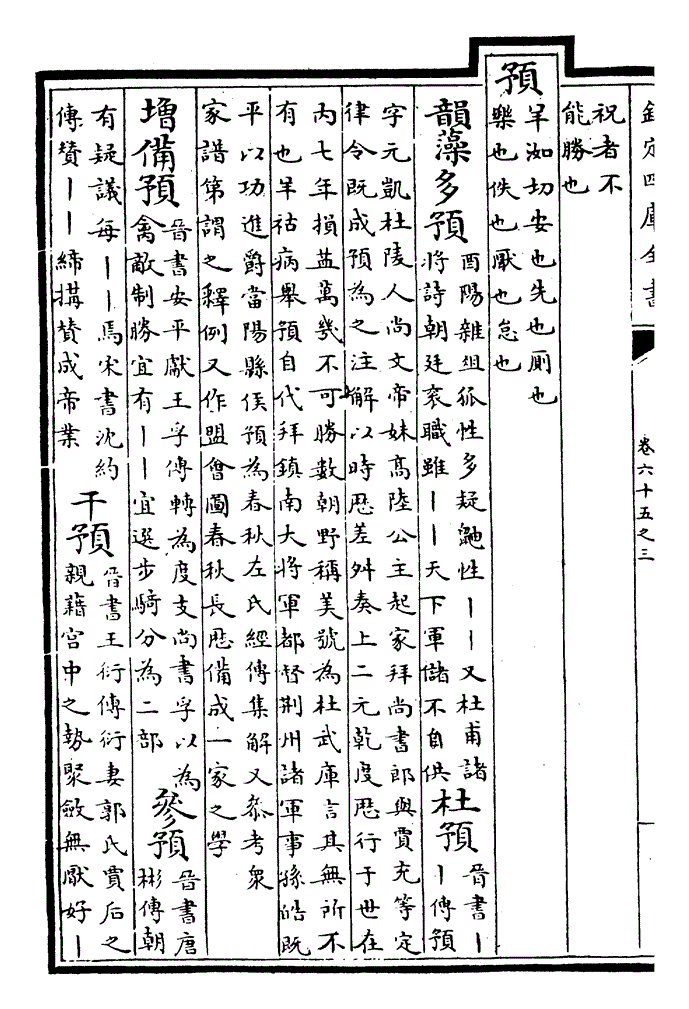 欽定四庫全書
卷六十五之三
祝者不
能勝也
預
羊洳切安也先也厠也
樂也佚也厭也怠也
韻藻多預
酉陽雜俎狐性多疑鼬性丨丨又杜甫諸
將詩朝廷衮職雖丨丨天下軍儲不自供
杜預
晉書丨
丨傳預
字元凱杜陵人尚文帝妹髙陸公主起家拜尚書郎與賈充等定
律令既成預為之注解以時歴差舛奏上二元乾度歴行于世在
内七年損益萬幾不可勝數朝野稱美號為杜武庫言其無所不
有也羊祜病舉預自代拜鎮南大將軍都督荆州諸軍事孫皓既
平以功進爵當陽縣侯預為春秋左氏經傳集解又叅考衆
家譜第謂之釋例又作盟會圖春秋長歴備成一家之學
増備預
晉書安平獻王孚傳轉為度支尚書孚以為
禽敵制勝宜有丨丨宜選步騎分為二部
參預
晉書唐
彬傳朝
有疑議每丨丨焉宋書沈約
傳贊丨丨締搆贊成帝業
干預
晉書王衍傳衍妻郭氏賈后之
親藉宫中之勢聚斂無厭好丨